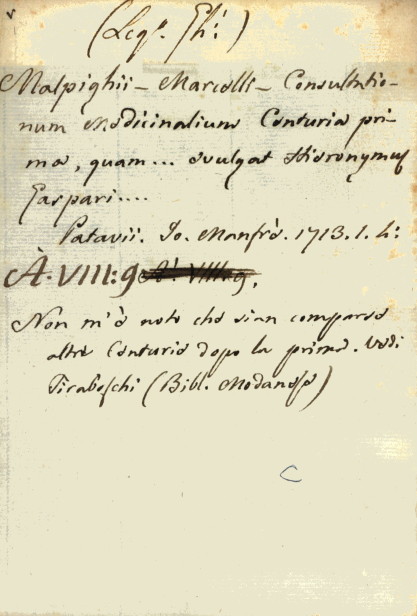 (Leg.
Malpighii – Marcelli – Consultatio-
num Medicinalium Centuria pri-
ma, quam... evulgat Hieronymus
Gaspari....
Patavii. Jo. Manfrè. 1713. 1. 4:
A. VIII: 9
Non m'è noto che sian comparse
altre Centurie dopo la prima. Vedi
Tiraboschi (Bibl. Modanese)
C